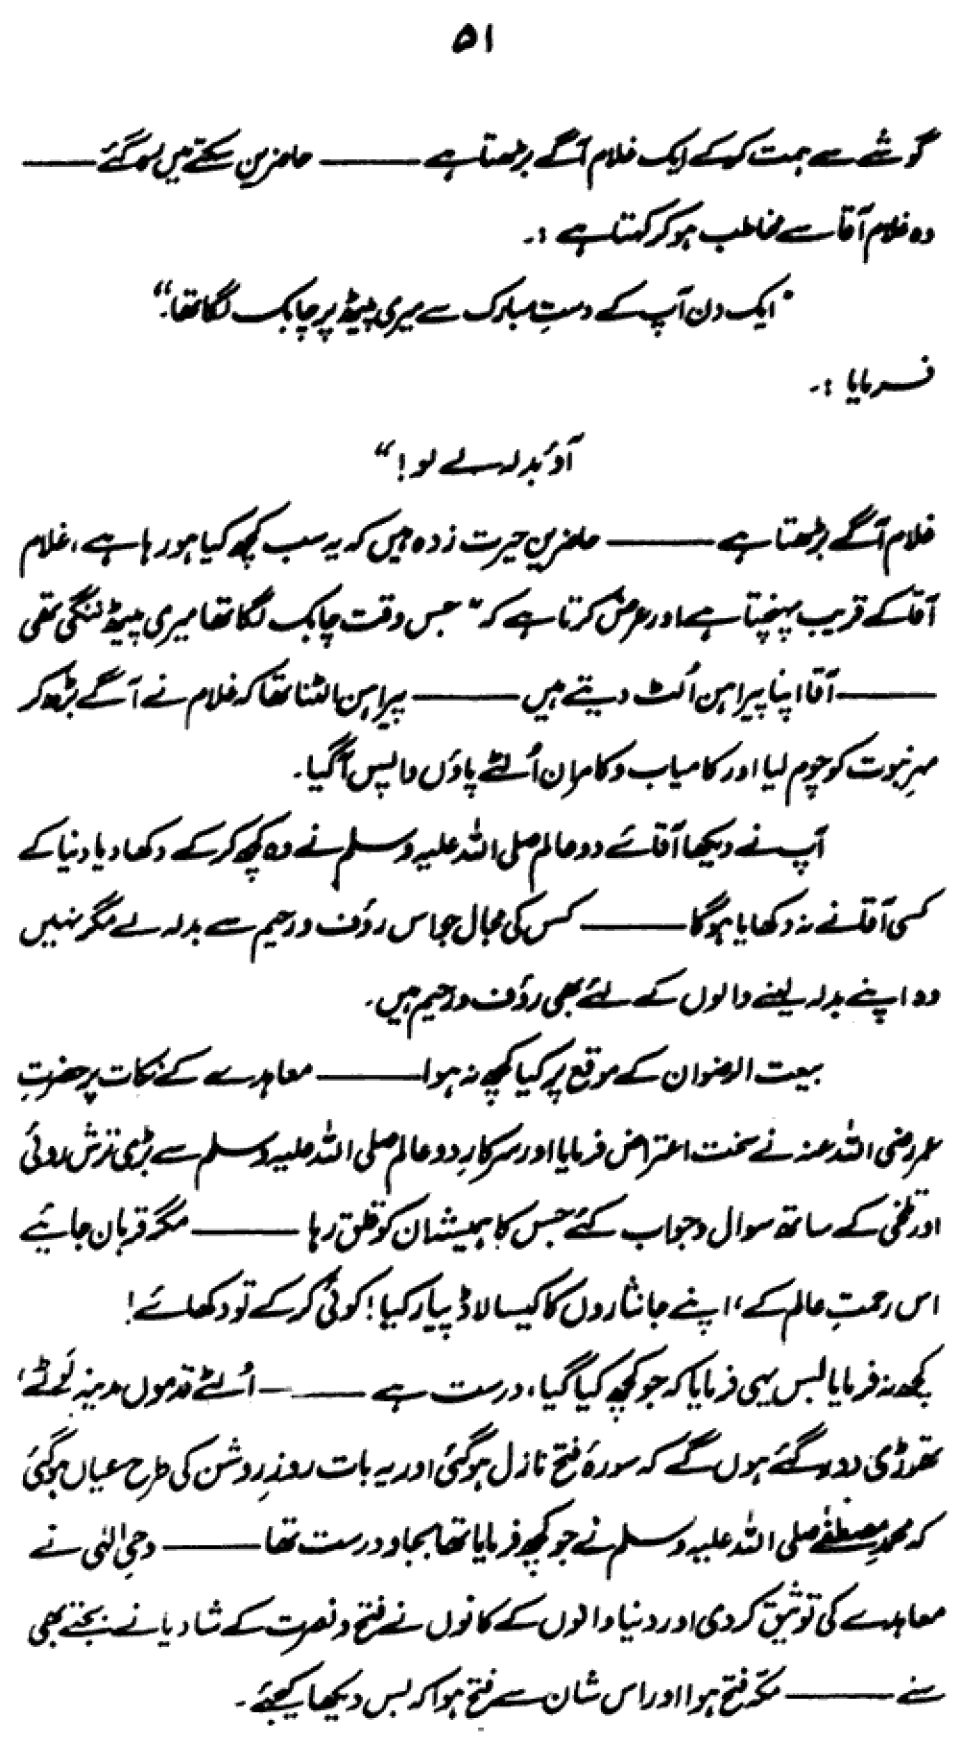 ۵۱
گوشے سے ہمت کرکے ایک غلام آگے بڑھتا ہے ——— حاضرین سکتے میں رہ گئے ———
وہ غلام آقا سے مخاطب ہو کر کہتا ہے :۔
"ایک دن آپ کے دستِ مبارک سے میری پیٹھ پر چابک لگا تھا۔"
فرمایا :۔
آؤ بدلہ لے لو!"
غلام آگے بڑھتا ہے ——— حاضرین حیرت زدہ ہیں کہ یہ سب کچھ کیا ہو رہا ہے، غلام
آقا کے قریب پہنچتا ہے اور عرض کرتا ہے کہ "جس وقت چابک لگا تھا میری پیٹھ ننگی تھی
——— آقا اپنا پیراہن اُلٹ دیتے ہیں ——— پیراہن الٹنا تھا کہ غلام نے آگے بڑھ کر
مہرِ نبوت کو چوم لیا اور کامیاب و کامران اُلٹے پاؤں واپس آگیا۔
آپ نے دیکھا آقائے دو عالم صلی اللہ علیہ وسلم نے وہ کچھ کرکے دکھا دیا دنیا کے
کسی آقا نے نہ دکھایا ہوگا ——— کس کی مجال جو اس رؤف و رحیم سے بدلہ لے مگر نہیں
وہ اپنے بدلہ لینے والوں کے لئے بھی رؤف و رحیم ہیں۔
بیعت الرضوان کے موقع پر کیا کچھ نہ ہوا ——— معاہدے کے نکات پر حضرت
عمر رضی اللہ عنہ نے سخت اعتراض فرمایا اور سرکارِ دو عالم صلی اللہ علیہ وسلم سے بڑی ترش روئی
اور تلخی کے ساتھ سوال و جواب کئے جس کا ہمیشہ ان کو قلق رہا ——— مگر قربان جائیے
اس رحمتِ عالم کے، اپنے جانثاروں کا کیسا لاڈ پیار کیا! کوئی کرکے تو دکھائے!
کچھ نہ فرمایا بس یہی فرمایا کہ جو کچھ کیا گیا، درست ہے ——— اُلٹے قدموں مدینہ لَوٹے،
تھوڑی دور گئے ہوں گے کہ سورۂ فتح نازل ہوگئی اور یہ بات روزِ روشن کی طرح عیاں ہوگئی
کہ محمد مصطفےٰ صلی اللہ علیہ وسلم نے جو کچھ فرمایا تھا بجا و درست تھا ——— وحیِ الٰہی نے
معاہدے کی توثیق کردی اور دنیا والوں کے کانوں نے فتح و نصرت کے شادیانے بجتے بھی
سنے ——— مکّہ فتح ہوا اور اس شان سے فتح ہوا کہ بس دیکھا کیجئے۔